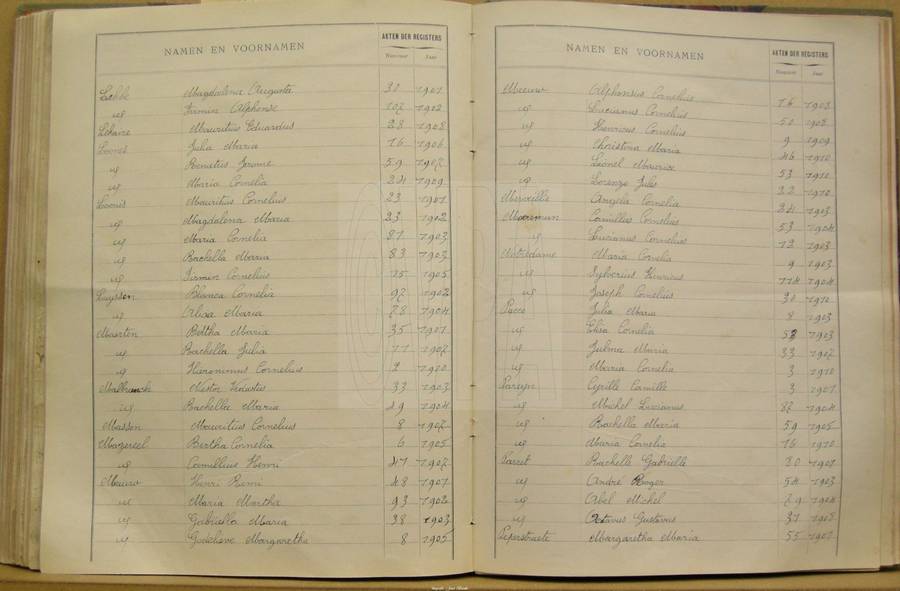 NAMEN EN VOORNAMEN AKTEN DER REGISTERS
Nummer Jaar
Magdalena Augusta 30 1901
id Firmin Alphonse 102 1902
Mauritius Eduardus 28 1908
Loonis Julia Maria 16 1906
id Remetus Jerome 59 1907
id Maria Cornelia 24 1909
Loonis Mauritius Cornelius 23 1901
id Magdalena Maria 23 1902
id Maria Cornelia 81 1903
id Rachella Maria 83 1903
id Firmin Cornelius 15 1905
Luyssen Blanca Cornelia 92 1902
id Alisa Maria 78 1904
Maerten Bertha Maria 35 1901
id Rachella Julia 11 1902
id Hieronimus Cornelius 2 1910
Malbranck Nestor Venustus 33 1903
id Rachella Maria 49 1904
Masson Mauritius Cornelius 8 1902
Mazereel Bertha Cornelia 6 1905
id Cornelius Henri 47 1907
Meeuw Henri Remi 48 1901
id Maria Martha 93 1902
id Gabriella Maria 38 1903
id Godelieve Margaretha 8 1905
NAMEN EN VOORNAMEN AKTEN DER REGISTERS
Nummer Jaar
Meeuw Alphonsus Cornelius 16 1908
id Lucianus Cornelius 50 1908
id Henricus Cornelius 9 1909
id Christina Maria 46 1910
id Lionel Maurice 53 1910
id Lorenzo Jules 22 1912
Merveille Angela Cornelia 24 1903
Moerman Camillus Cornelius 53 1904
id Lucianus Cornelius 12 1903
Notredame Maria Cornelia 9 1903
id Sylverius Henricus 114 1904
id Joseph Cornelius 30 1910
Pacco Julia Maria 8 1903
id Elisa Cornelia 52 1903
id Julma Maria 33 1907
id Maria Cornelia 3 1910
Pareyn Cyrille Camille 3 1901
id Michel Lucianus 82 1904
id Rachella Maria 59 1905
id Maria Cornelia 16 1910
Parret Rachelle Gabrielle 30 1901
id André Roger 54 1903
id Abel Michel 79 1904
id Octavus Gustavus 31 1905
Peperstraete Margaretha Maria 55 1901